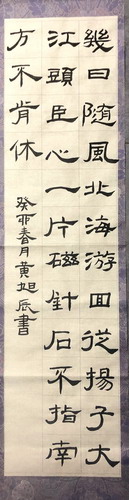 幾日隨風北海游回從揚子大
江頭臣心一片磁針石不指南
方不肯休
癸卯春月黃旭辰書